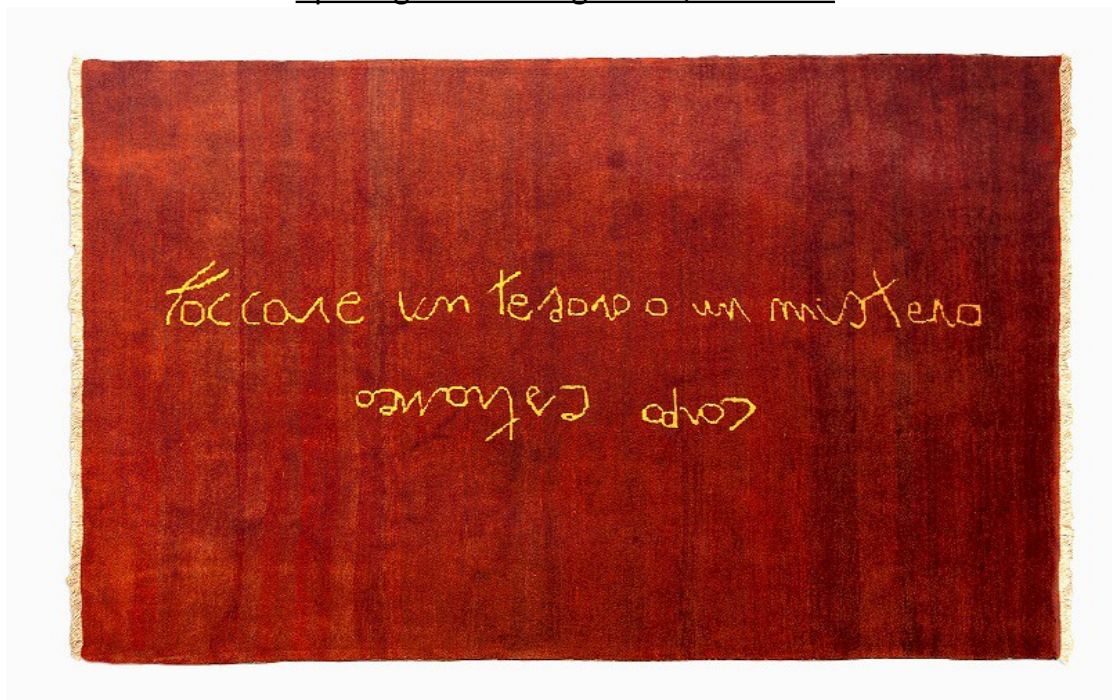 Toccare un tesoro o un mistero
corpo estraneo